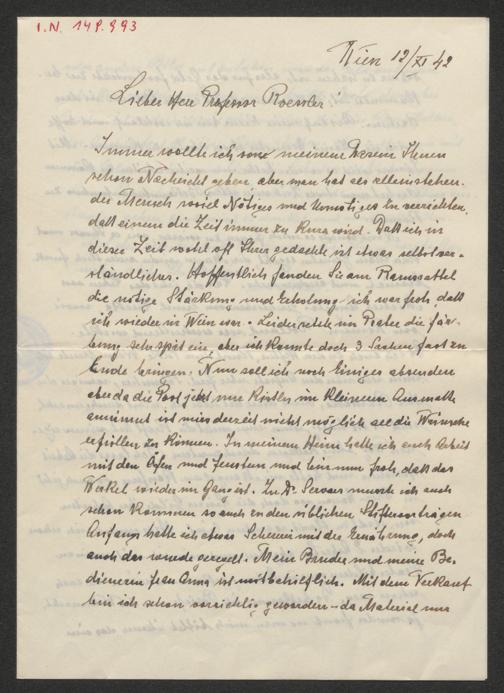 I.N. 148.993
Wien 12/XI 42
Lieber Herr Professor Roessler!
Immer wollte ich von meinem Dasein Ihnen
schon Nachricht geben, aber man hat als alleinstehen-
der Mensch soviel Nötiges und Unnötiges zu verrichten,
daß einem die Zeit immer zu kurz wird. Daß ich in
dieser Zeit wohl oft Ihrer gedachte, ist etwas selbstver-
ständliches. Hoffentlich fanden Sie am Ramssattel
die nötige Stärkung und Erholung, ich war froh, daß
ich wieder in Wien war. Leider setzte im Prater die Fär-
bung sehr spät ein, aber ich konnte doch 3 Sachen fast zu
Ende bringen. Nun soll ich noch Einiges absenden
aber da die Post jetzt nur Kisten im kleinem Ausmaße
annimmt ist mir derzeit nicht möglich all die Wünsche
erfüllen zu können. In meinem Heim hatte ich auch Arbeit
mit den Öfen und Fenstern und bin nun froh, daß das
Werkel wieder im Gang ist. Zu Dr. Servaes mußte ich auch
schon kommen so auch zu den üblichen Stiftervorträgen.
Anfangs hatte ich etwas mit der Ernährung, doch
auch das wurde geregelt. Mein Bruder und meine Be-
dienerin Frau Anna ist mitbehilflich. Mit dem Verkauf
bin ich schon vorsichtig geworden – da Material nur